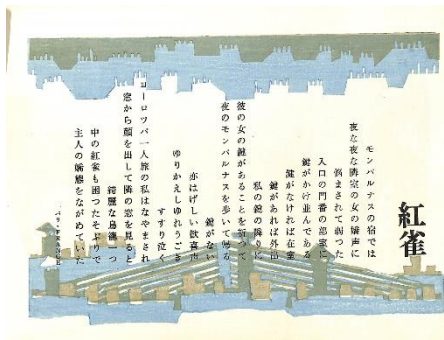 紅雀
モンパルナスの宿では
夜な夜な隣室の女の嬌声に
悩まされて弱つた
入口の門番の部室に
鍵がかけ並んである
鍵がなければ在室
鍵があれば外出
私の鍵の隣りに
彼の女の鍵があることを祈つて
夜のモンパルナスを歩いて帰る
鍵がない
亦はげしい歓喜声
ゆりかえしゆれうごき
すすり泣く
ヨーロツパ一人旅の私はなやまされ
窓から顔を出して隣の窓を見ると
綺麗な鳥籠一つ
中の紅雀も困つたそぶりで
主人の嬌態をながめていた